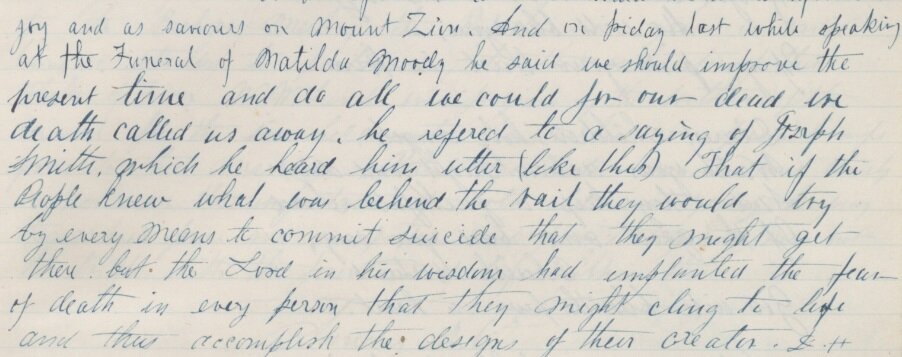 joy and as saviours on Mount Zion. And on friday last while speaking
at the Funeral of Matilda Moody he said we should improve the
present time and do all we could for our dead ere
death called us away. he refered to a saying of Joseph
Smith, which he heard him utter (like this) That if the
People knew what was behind the vail they would try
by every means to commit suicide that they might get
there. but the Lord in his wisdom had implanted the fear
of death in every person that they might cling to life
and thus accomplish the designs of their creator.